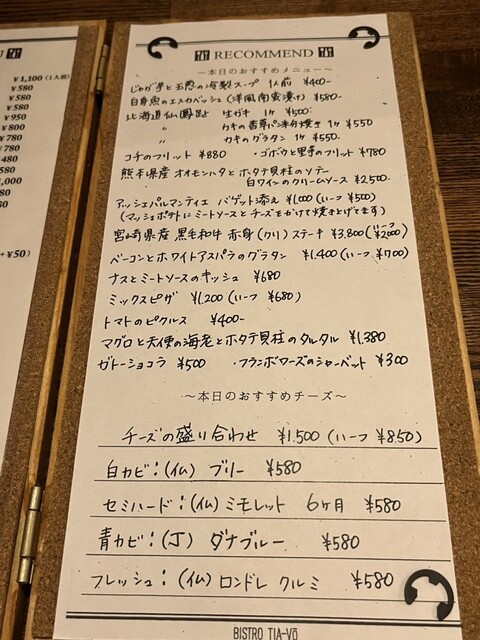 U
¥1,100(1人前)
¥580
¥580
¥580
¥950
¥800
¥780
¥780
480
580
,000
580
580
+¥50)
RECOMMEND
～本日のおすすめメニュー～
じゃが芋と玉葱の冷製スープ 1人前 ¥400-
白身魚のエスカベッシュ(洋風南蛮漬け) ¥580-
北海道仙鳳趾 生ガキ 1ヶ ¥500-
〃 カキの香草パン粉焼き 1ヶ ¥550
〃 カキのグラタン 1ヶ ¥550.
コチのフリット ¥880 ・ゴボウと里芋のフリット ¥780
熊本県産 オオモンハタとホタテ貝柱のソテー
白ワインのクリームソース ¥2,500-
アッシェパルマンティエ バゲット添え ¥1,000(ハーフ ¥500)
(マッシュポテトにミートソースとチーズをかけて焼き上げてます)
宮崎県産 黒毛和牛 赤身(クリ)ステーキ ¥3,800(ハーフ ¥2,000)
ベーコンとホワイトアスパラのグラタン ¥1,400(ハーフ ¥700)
ナスとミートソースのキッシュ ¥680
ミックスピザ ¥1,200(ハーフ ¥680)
トマトのピクルス ¥400-
マグロと天使の海老とホタテ貝柱のタルタル ¥1,380
ガトーショコラ ¥500 ・フランボワーズのシャーベット ¥300
～本日のおすすめチーズ～
チーズの盛り合わせ ¥1,500(ハーフ ¥850)
白カビ:(仏) ブリー ¥580
セミハード:(仏) ミモレット 6ヶ月 ¥580
青カビ:(丁) ダナブルー ¥580
フレッシュ:(仏) ロンドレ クルミ ¥580
BISTRO TIA-Vō